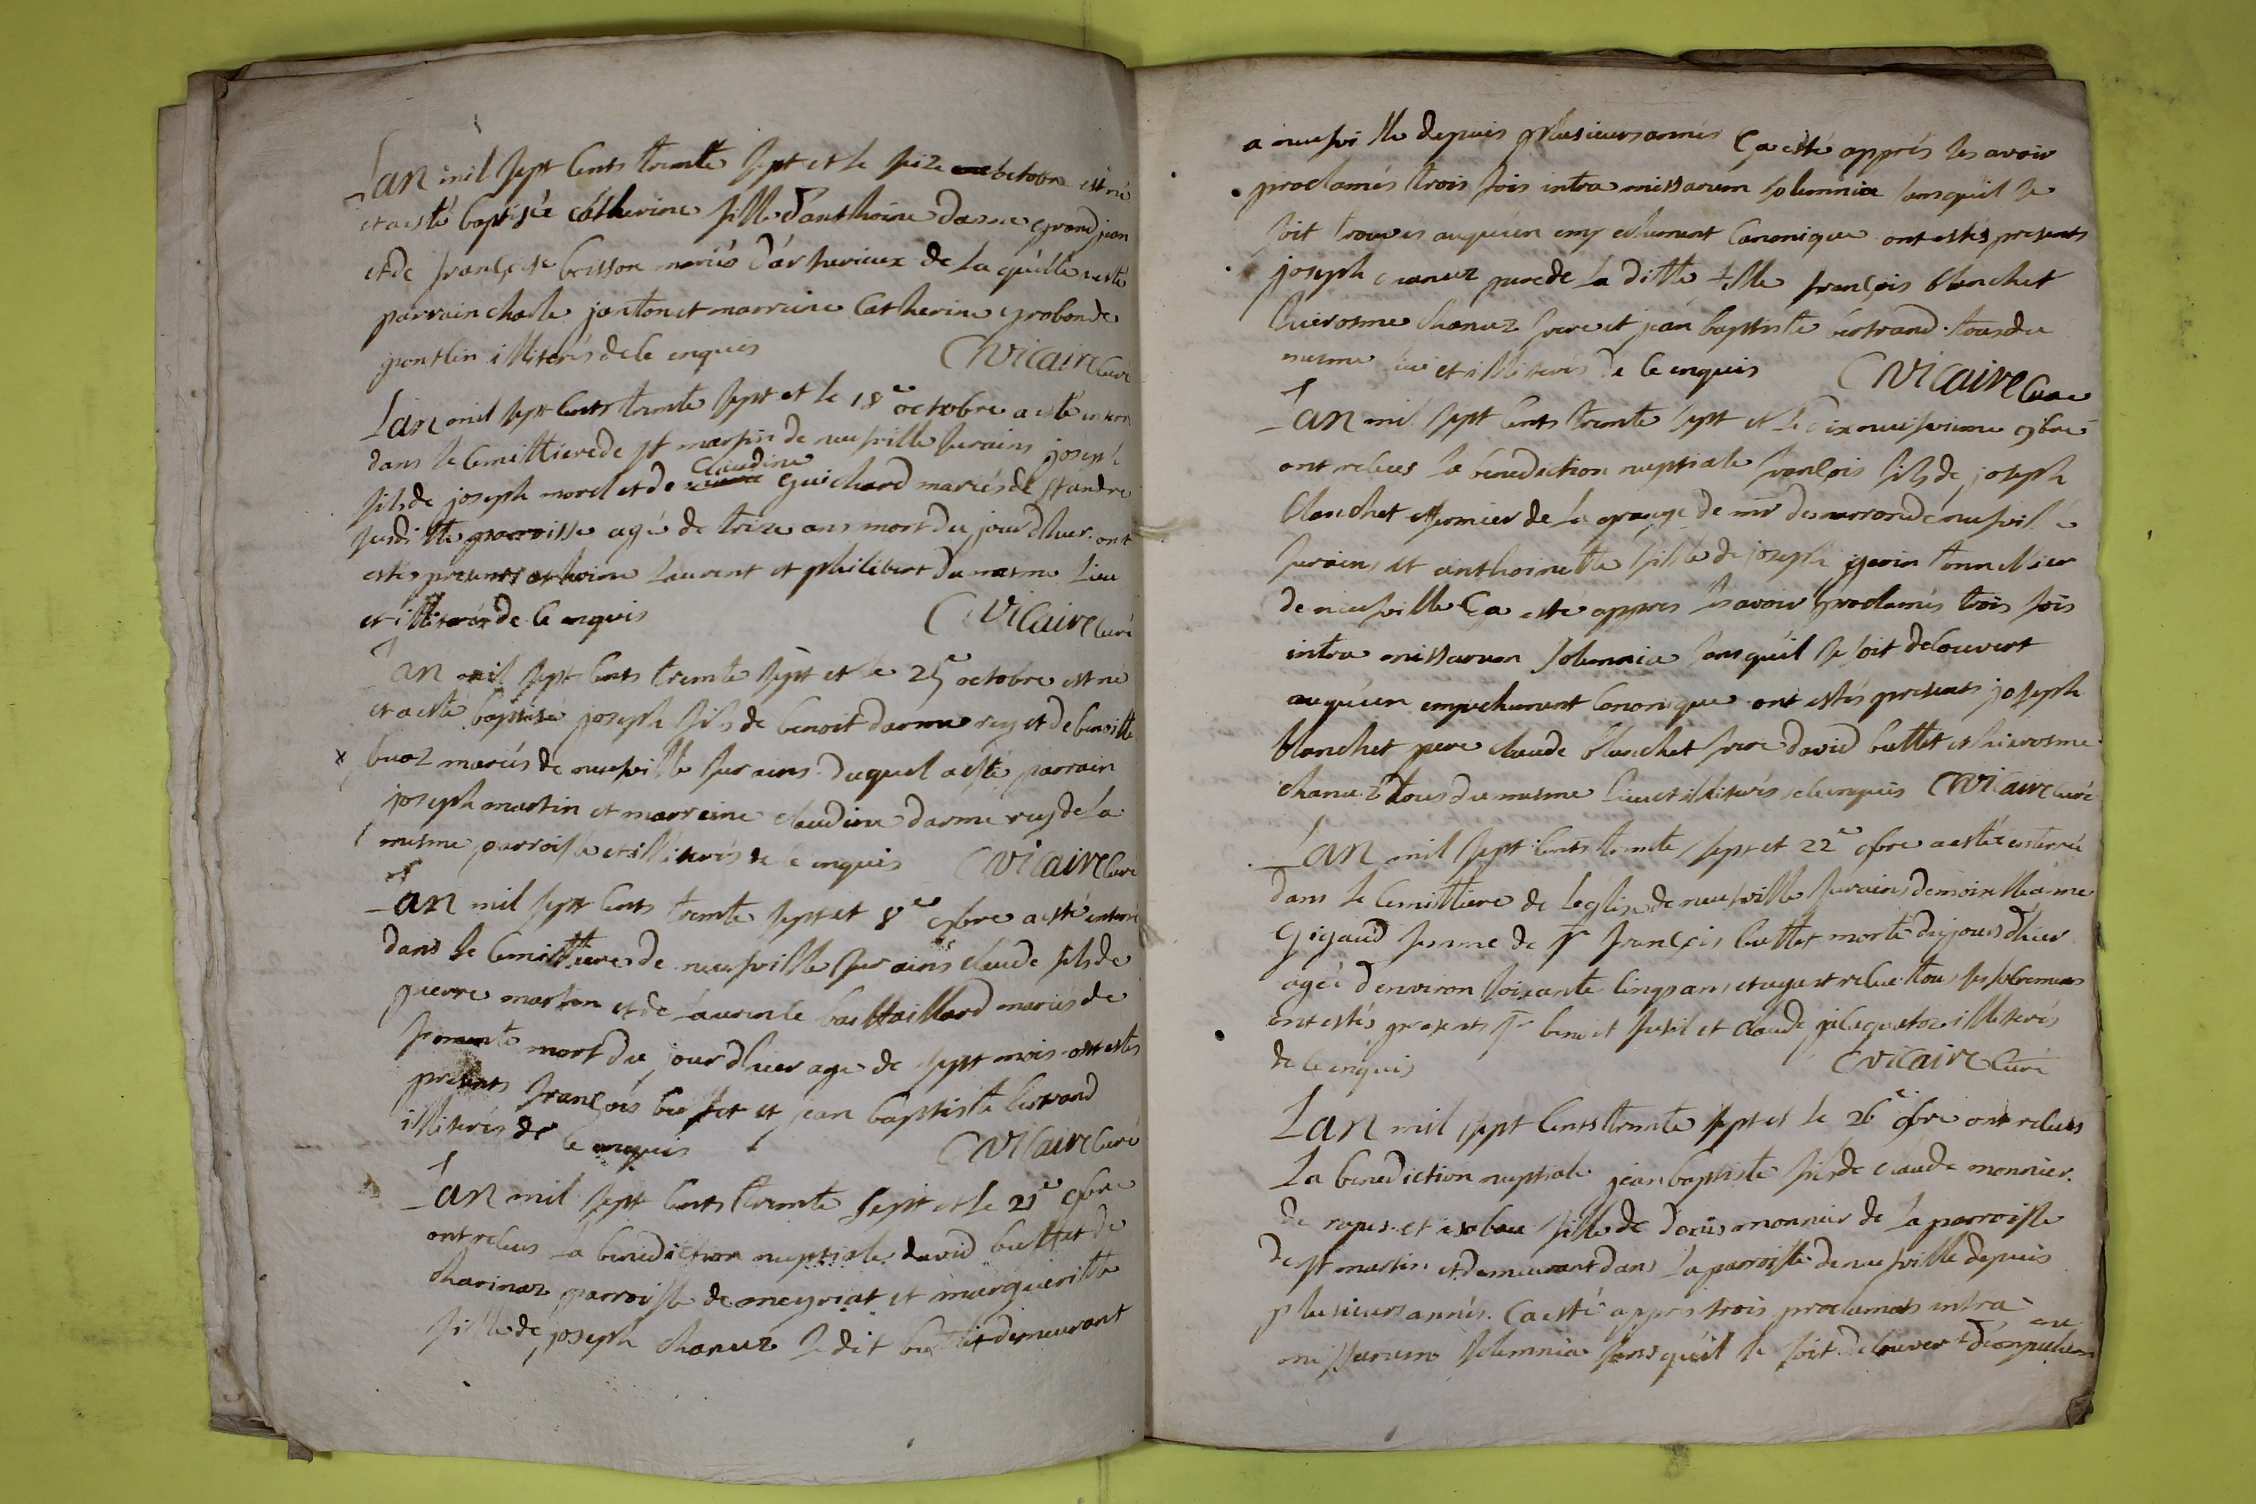 Lan mil sept cents trente sept et le seize octobre est né
et a esté baptisée catherine fille d'anthoine darme grand jean
et de françoise boisson mariés d'arthurieux de laquelle a esté
parrain charle janton et marreine Catherine grobon de
pontlin illiterés de ce enquis Cvicaire Curé
Lan mil sept cents trente sept et le 18e octobre a esté enterré
dans le Cemittiere de st martin de neufville sur ains joseph
fils de joseph morel et de Claudine Guichard mariés de st andre
susditte parroisse agé de treize ans mort du jour d'hier ont
estés presents anthoine Laurent et philibert du mesme Lieu
et illiterés de ce enquis Cvicaire Curé
Lan mil sept cents trente sept et le 25e octobre est né
et a esté baptisé joseph fils de benoit darme rey et de benoitte
buoz mariés de neufville sur ains duquel a esté parrain
joseph martin et marreine claudine darme rey de la
mesme parroisse et illiterés de ce enquis Cvicaire Curé
Lan mil sept cents trente sept et 8e 9bre a esté enterré
dans le Cemittiere de neufville sur ains claude fils de
pierre marton et de Laurence bachaillard mariés de
mort du jour d'hier agé de sept mois ont estés
presents françois buffet et jean baptiste bertrand
illiterés de ce enquis Cvicaire Curé
Lan mil sept cents trente sept et le 21e 9bre
ont receus la benediction nuptiale david buttet de
charinaz parroisse de meyriat et margueritte
fille de joseph chanuz le dit buttet demeurant
a neufville depuis plusieurs années Ca esté appres les avoir
proclamés trois fois intra missarum solemnia sans qu'il se
soit trouvés auqu'un empechement Canonique ont estés presents
joseph chanuz pere de la ditte fille françois blanchet
hierosme chanuz frere et jean baptiste bertrand tous du
mesme lieu et illiterés de ce enquis Cvicaire Curé
Lan mil sept cents trente sept et le dix neufvieme 9bre
ont receus la benediction nuptiale françois fils de joseph
blanchet fermier de la grange de mr de marron de neufville
sur ains et anthoinette fille de joseph tonnellier
de neufville Ca esté appres les avoir proclamés trois fois
intra missarum solemnia sans qu'il se soit decouvert
auqu'un empechement Canonique ont estés presents joseph
blanchet pere claude blanchet frere david buttet et hierosme
chanuz tous du mesme lieu et illiterés de enquis Cvicaire Curé
Lan mil sept cents trente sept et 22e 9bre a estée enterrée
dans le Cemittiere de leglise de neufville sur ains demoiselle anne
Gigaud femme de sr françois buttet morte du jour d'hier
agée d'environ soixante cinq ans et ayant receue tous ses sacremens
ont estés presents sr benoit fusil et claude illiterés
de ce enquis Cvicaire Curé
Lan mil sept cents trente sept et le 26e 9bre ont receus
La benediction nuptiale jean baptiste fils de claude monnier
de et isabeau fille de denis monnier de la parroisse
de st martin et demeurant dans la parroisse de neufville depuis
plusieurs années. Ca esté appres trois proclamats intra
missarum solemnia sans qu'il se soit decouvert d'empechem